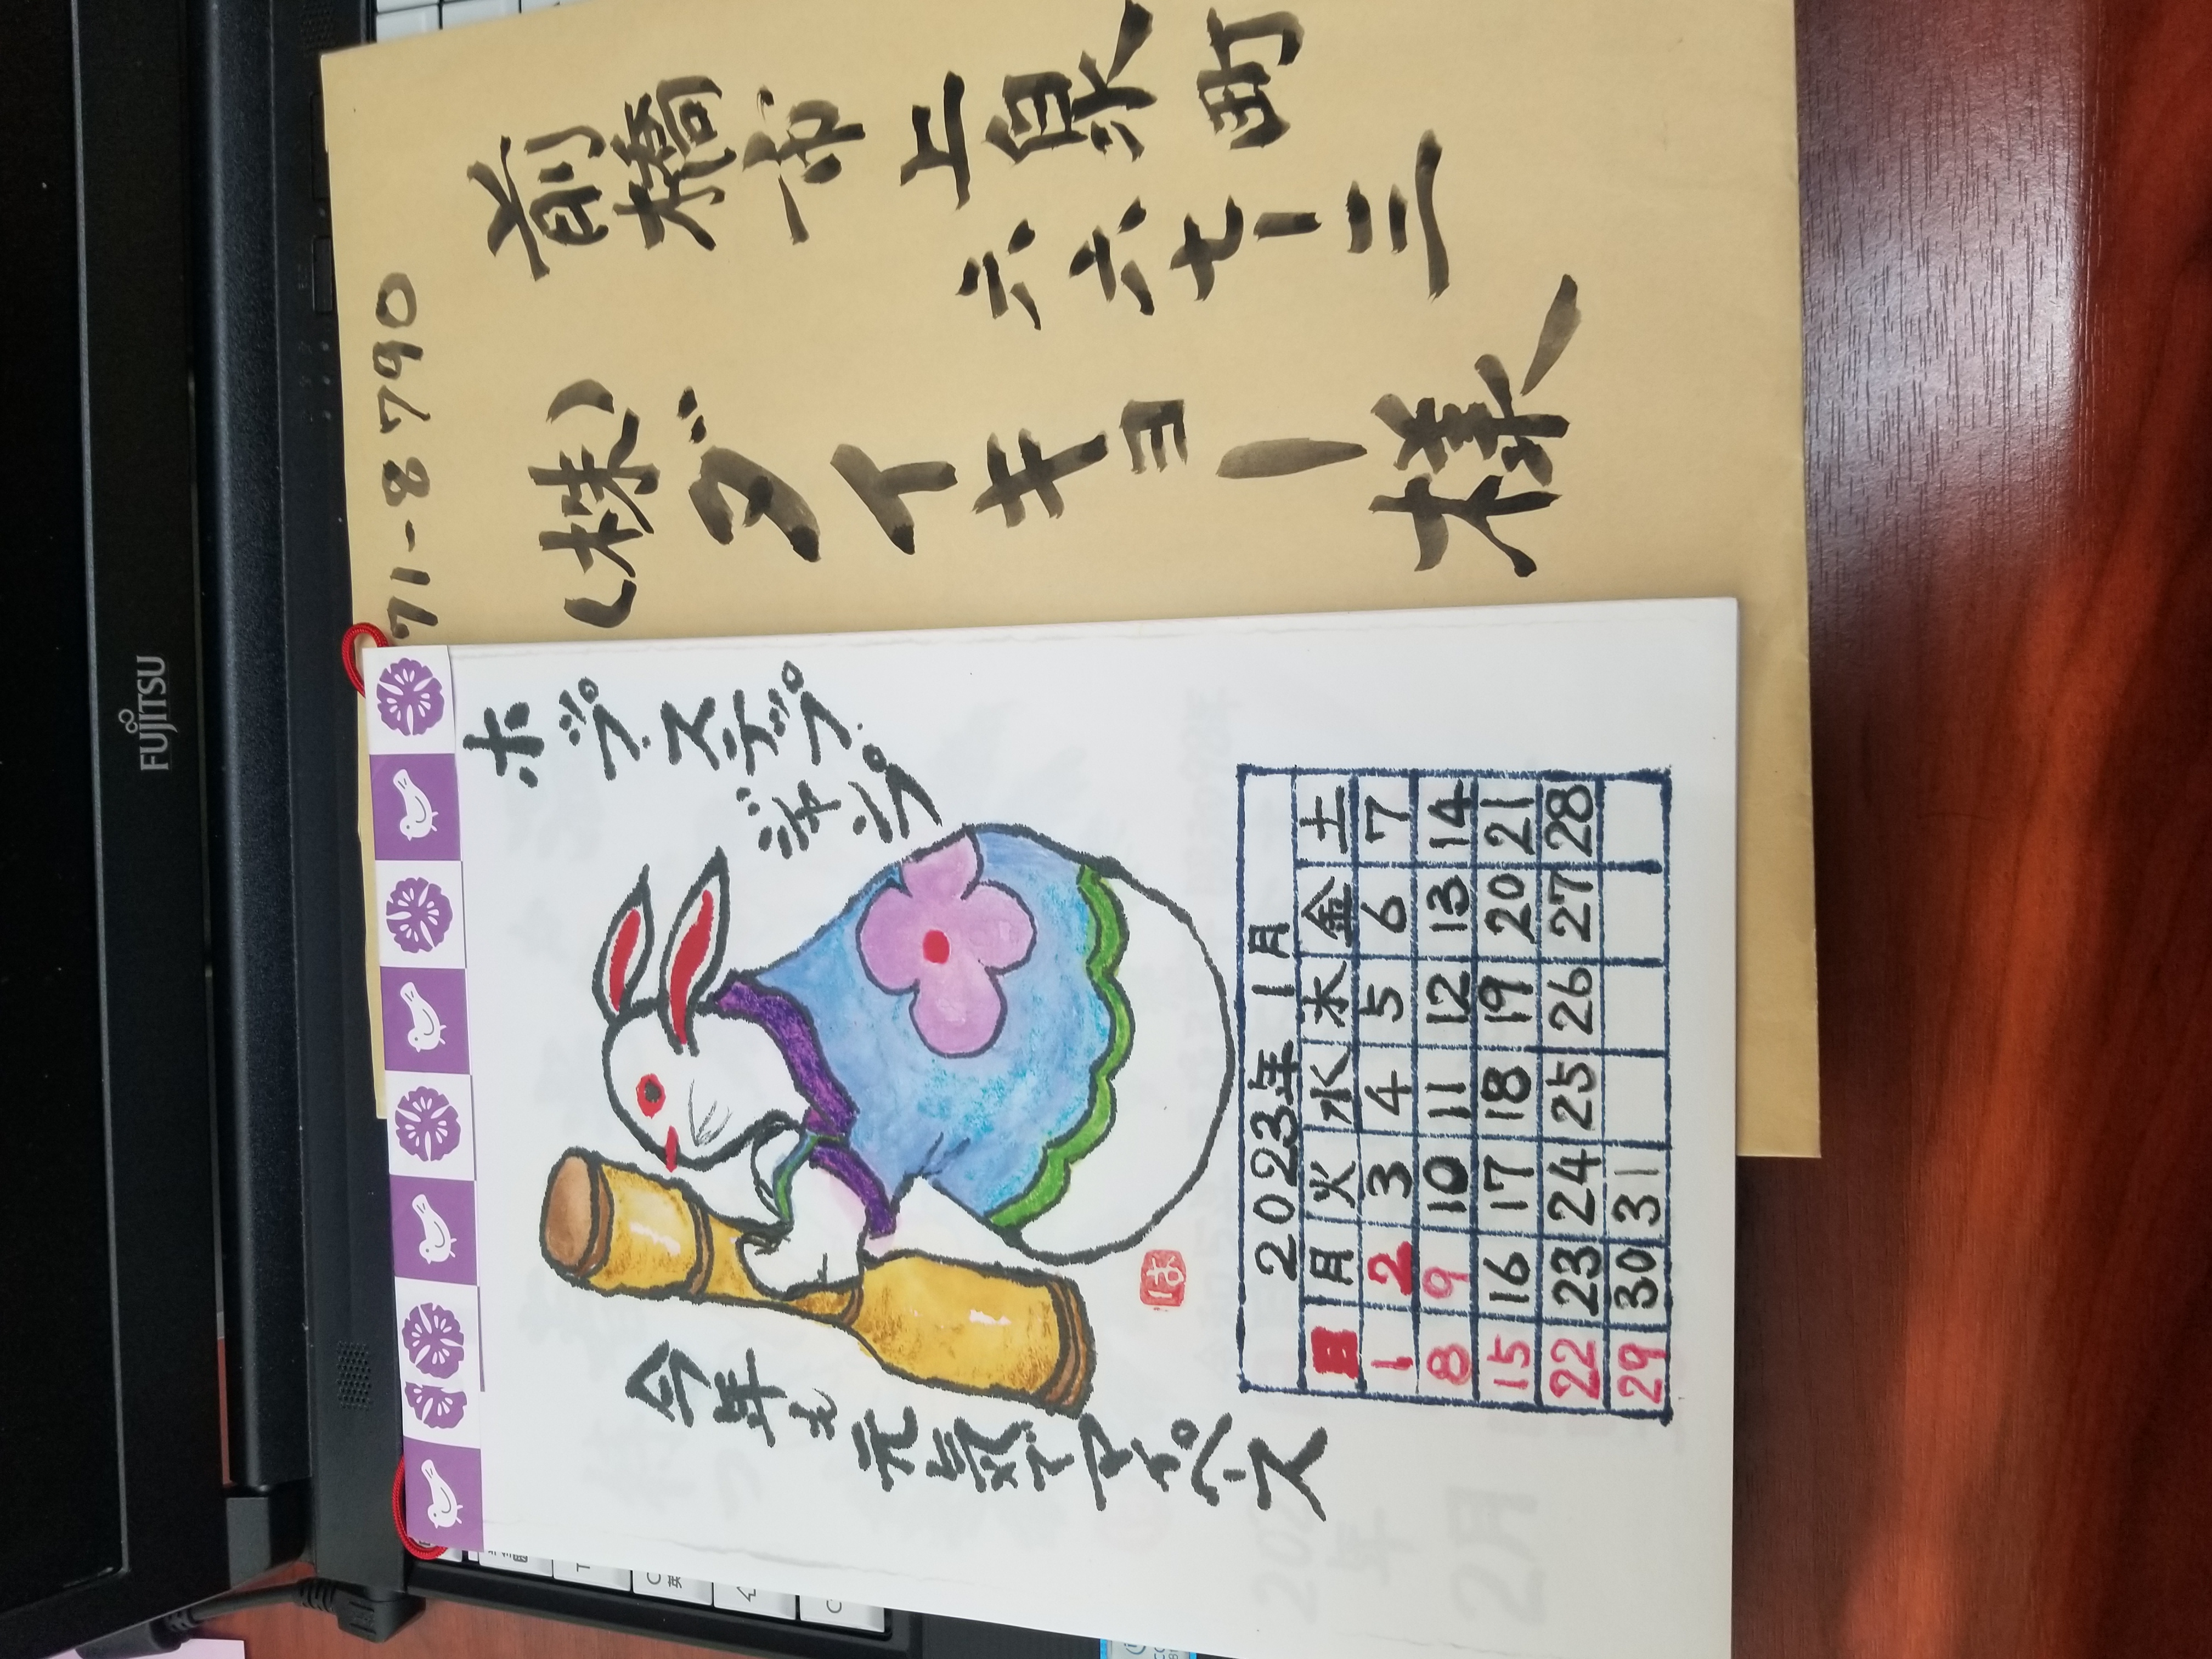 FUJITSU
71-8790
前橋市上泉町
六六七ー三
(株)ダイキョー様
ホップ・ステップ・
ジャンプ
今年も
元気で
マイペース
は
2023年 1月
日 月 火 水 木 金 土
1 2 3 4 5 6 7
8 9 10 11 12 13 14
15 16 17 18 19 20 21
22 23 24 25 26 27 28
29 30 31
2月